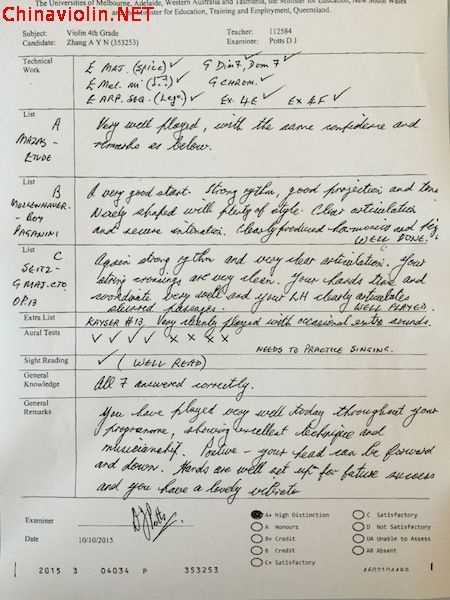 Chinaviolin.NET
The Universities of Melbourne, Adelaide, Western Australia and Tasmania, the Minister for Education, New South Wales
Minister for Education, Training and Employment, Queensland.
Subject: Violin 4th Grade Teacher: 112584
Candidate: Zhang A Y N (353253) Examiner: Potts D J
Technical Work
E MAJ. (Spicc) ✓ G Dim7, Dom 7 ✓
E Mel. mi ✓ G CHROM. ✓
E ARP. SEQ. (Lego) ✓ Ex. 4E ✓ Ex 4F ✓
List A
MAZAS - ETUDE
Very well played, with the same confidence and
remarks as below.
List B
MOLLENHAUER - BOY PAGANINI
A very good start. Strong rythm, good projection and tone
Nicely shaped with plenty of style. Clear articulation
and secure intonation. Clearly produced harmonics and
WELL DONE.
List C
SEITZ - G MAJ. CTO OP. 13
Again strong rythm and very clear articulation. Your
string crossings are very clean. Your hands time and
coordinate very well and your LH clearly articulates
slurred passages. WELL PLAYED.
Extra List KAYSER #13 Very cleanly played with occasional extra sounds.
Aural Tests ✓ ✓ ✓ ✓ × × × ×
NEEDS TO PRACTICE SINGING.
Sight Reading ✓ (WELL READ)
General Knowledge All 7 answered correctly.
General Remarks
You have played very well today throughout your
programme, showing excellent technique and
musicianship. Posture - your head can be forward
and down. Hands are well set up for future success
and you have a lovely vibrato
Examiner
Date 10/10/2015
A+ High Distinction
A Honours
B+ Credit
B Credit
C+ Satisfactory
C Satisfactory
D Not Satisfactory
UA Unable to Assess
AB Absent
2015 3 04034 P 353253